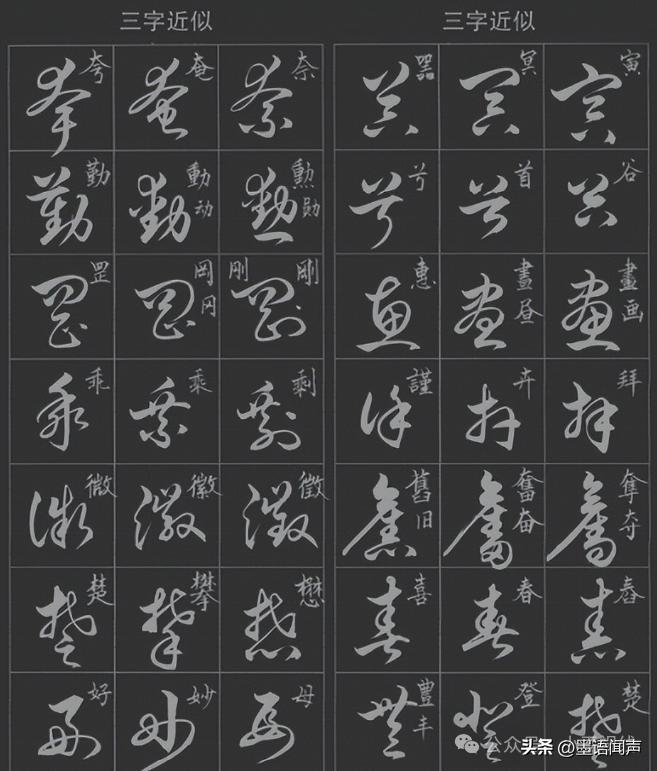 三字近似 三字近似
夸 奄 奈 器 冥 寅
勤 動动 勲勋 兮 首 谷
罡 岡冈 刚剛 惠 晝昼 畫画
乖 乘 剩 謹 卉 拜
微 徽 徵 舊旧 奮奋 奪夺
楚 攀 懋 喜 春 舂
好 妙 母 豐丰 登
头条 @墨语闻声